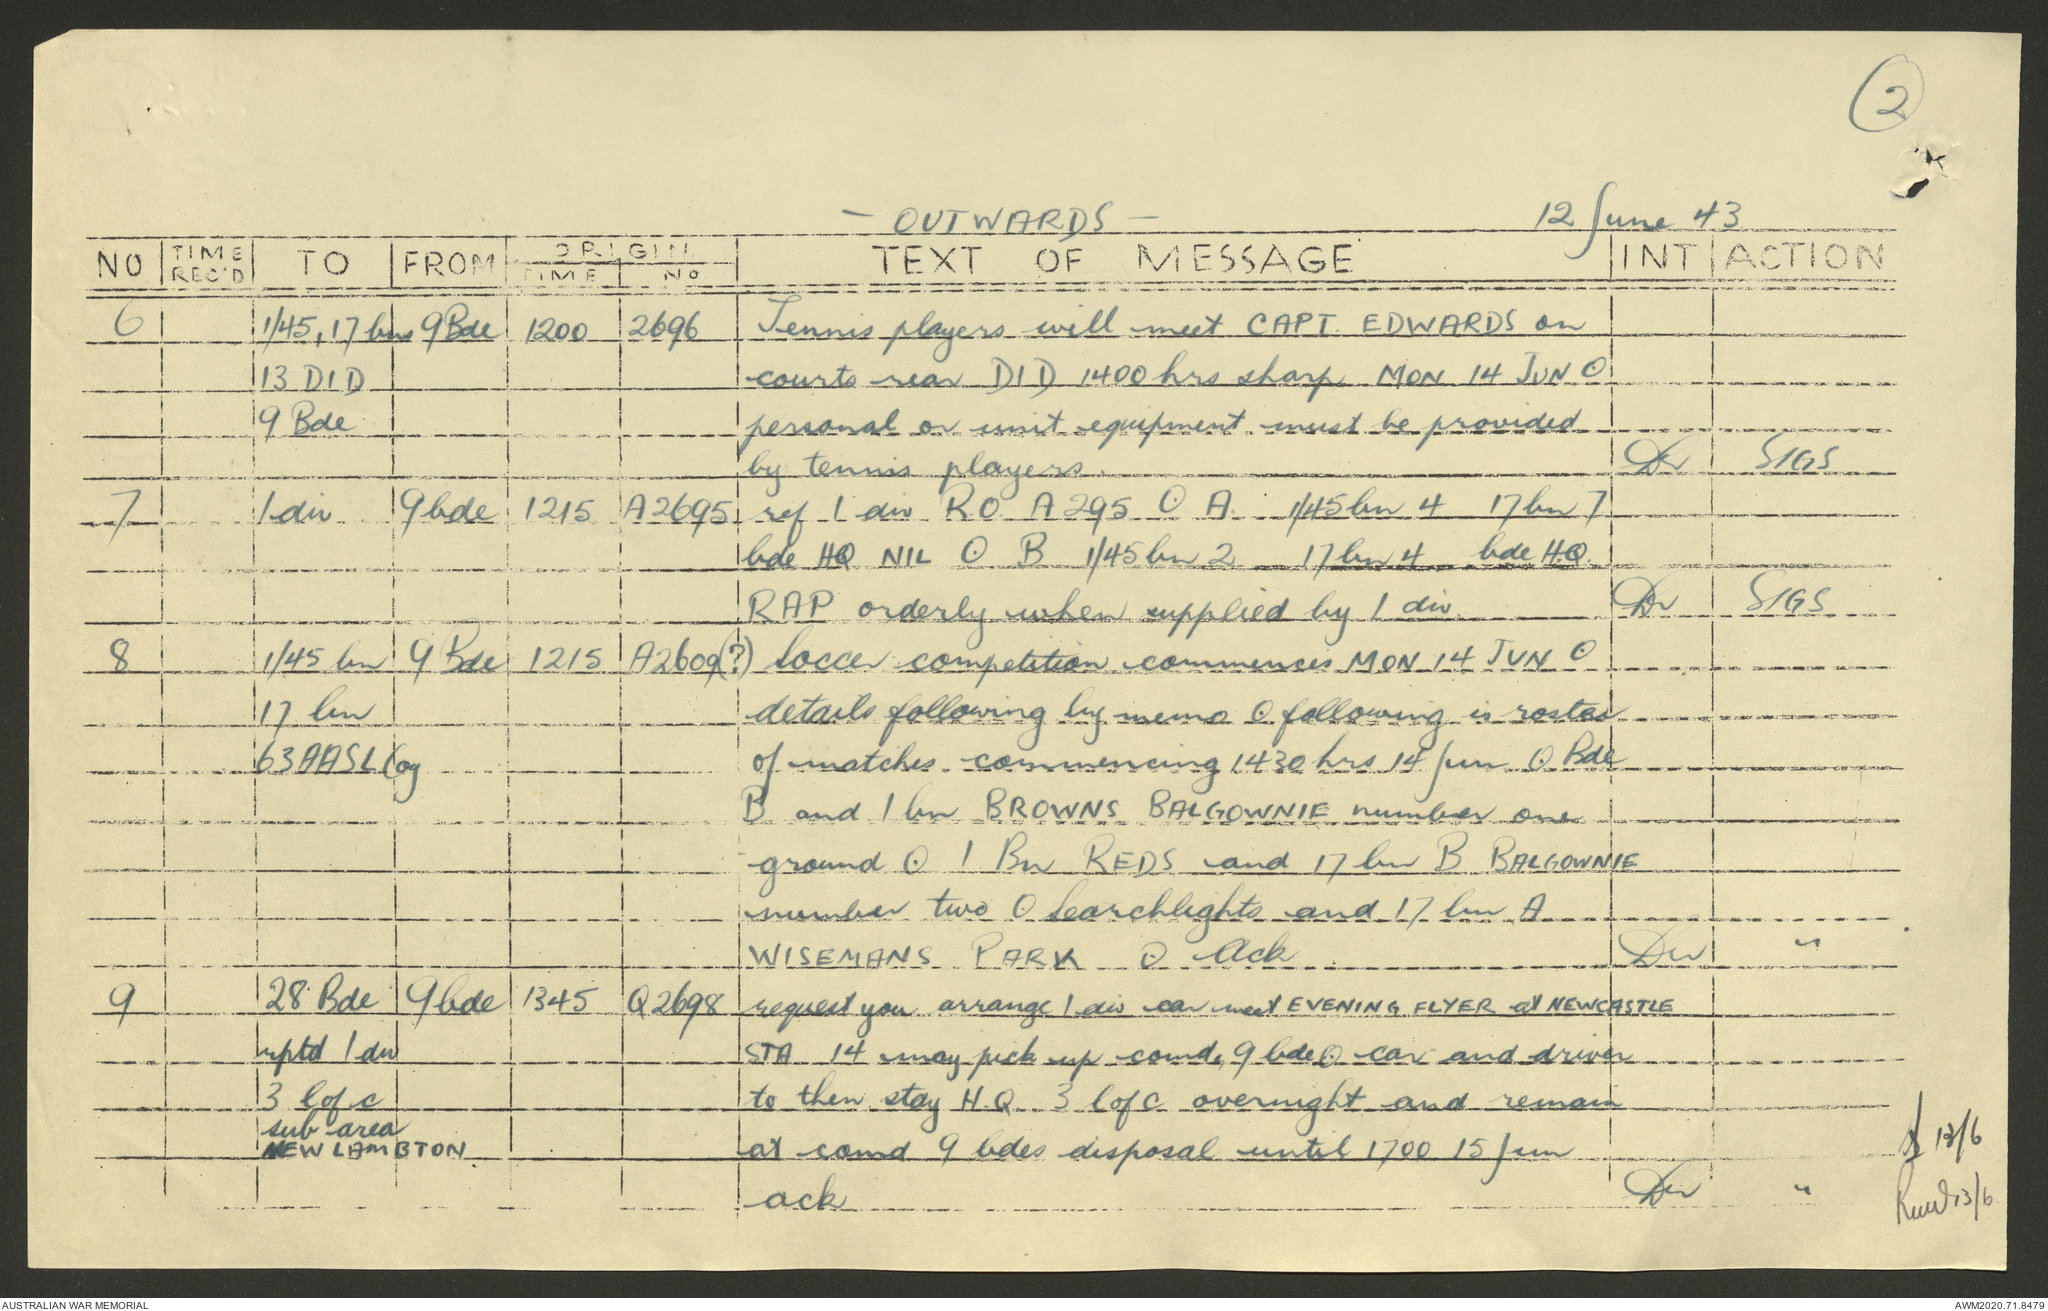 2
- OUTWARDS - 12 June 43
NO TIME REC'D TO FROM ORIGIN TIME No TEXT OF MESSAGE INT ACTION
6 1/45, 17 bns 9 Bde 1200 2696 Tennis players will meet CAPT. EDWARDS on
13 DID courts rear DID 1400 hrs sharp MON 14 JUN ⊙
9 Bde personal or unit equipment must be provided
by tennis players. SIGS
7 1 div 9 bde 1215 A2695 ref 1 div RO A295 ⊙ A. 1/45 bn 4 17 bn 7
bde HQ NIL ⊙ B 1/45 bn 2 17 bn 4 bde H.Q.
RAP orderly when supplied by 1 div. SIGS
8 1/45 bn 9 Bde 1215 A2609(?) Soccer competition commences MON 14 JUN ⊙
17 bn details following by memo ⊙ following is roster
63 AASL Coy of matches commencing 1430 hrs 14 Jun ⊙ Bde
B and 1 bn BROWNS BALGOWNIE number one
ground ⊙ 1 Bn REDS and 17 bn B BALGOWNIE
number two ⊙ Searchlights and 17 bn A
WISEMANS PARK ⊙ Ack "
9 28 Bde 9 bde 1345 Q2698 request you arrange 1 div car meet EVENING FLYER at NEWCASTLE
rptd 1 div STA 14 may pick up comd. 9 bde ⊙ car and driver
3 L of C to then stay H.Q. 3 L of C overnight and remain
sub area
NEW LAMBTON at comd 9 bdes disposal until 1700 15 Jun
ack "
13/6
13/6
AUSTRALIAN WAR MEMORIAL AWM2020.71.8479